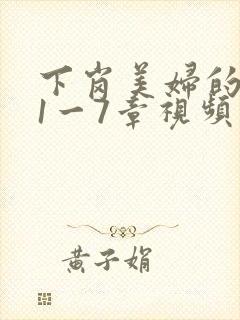 下岗美婦的
1一7章視頻
黄子娟